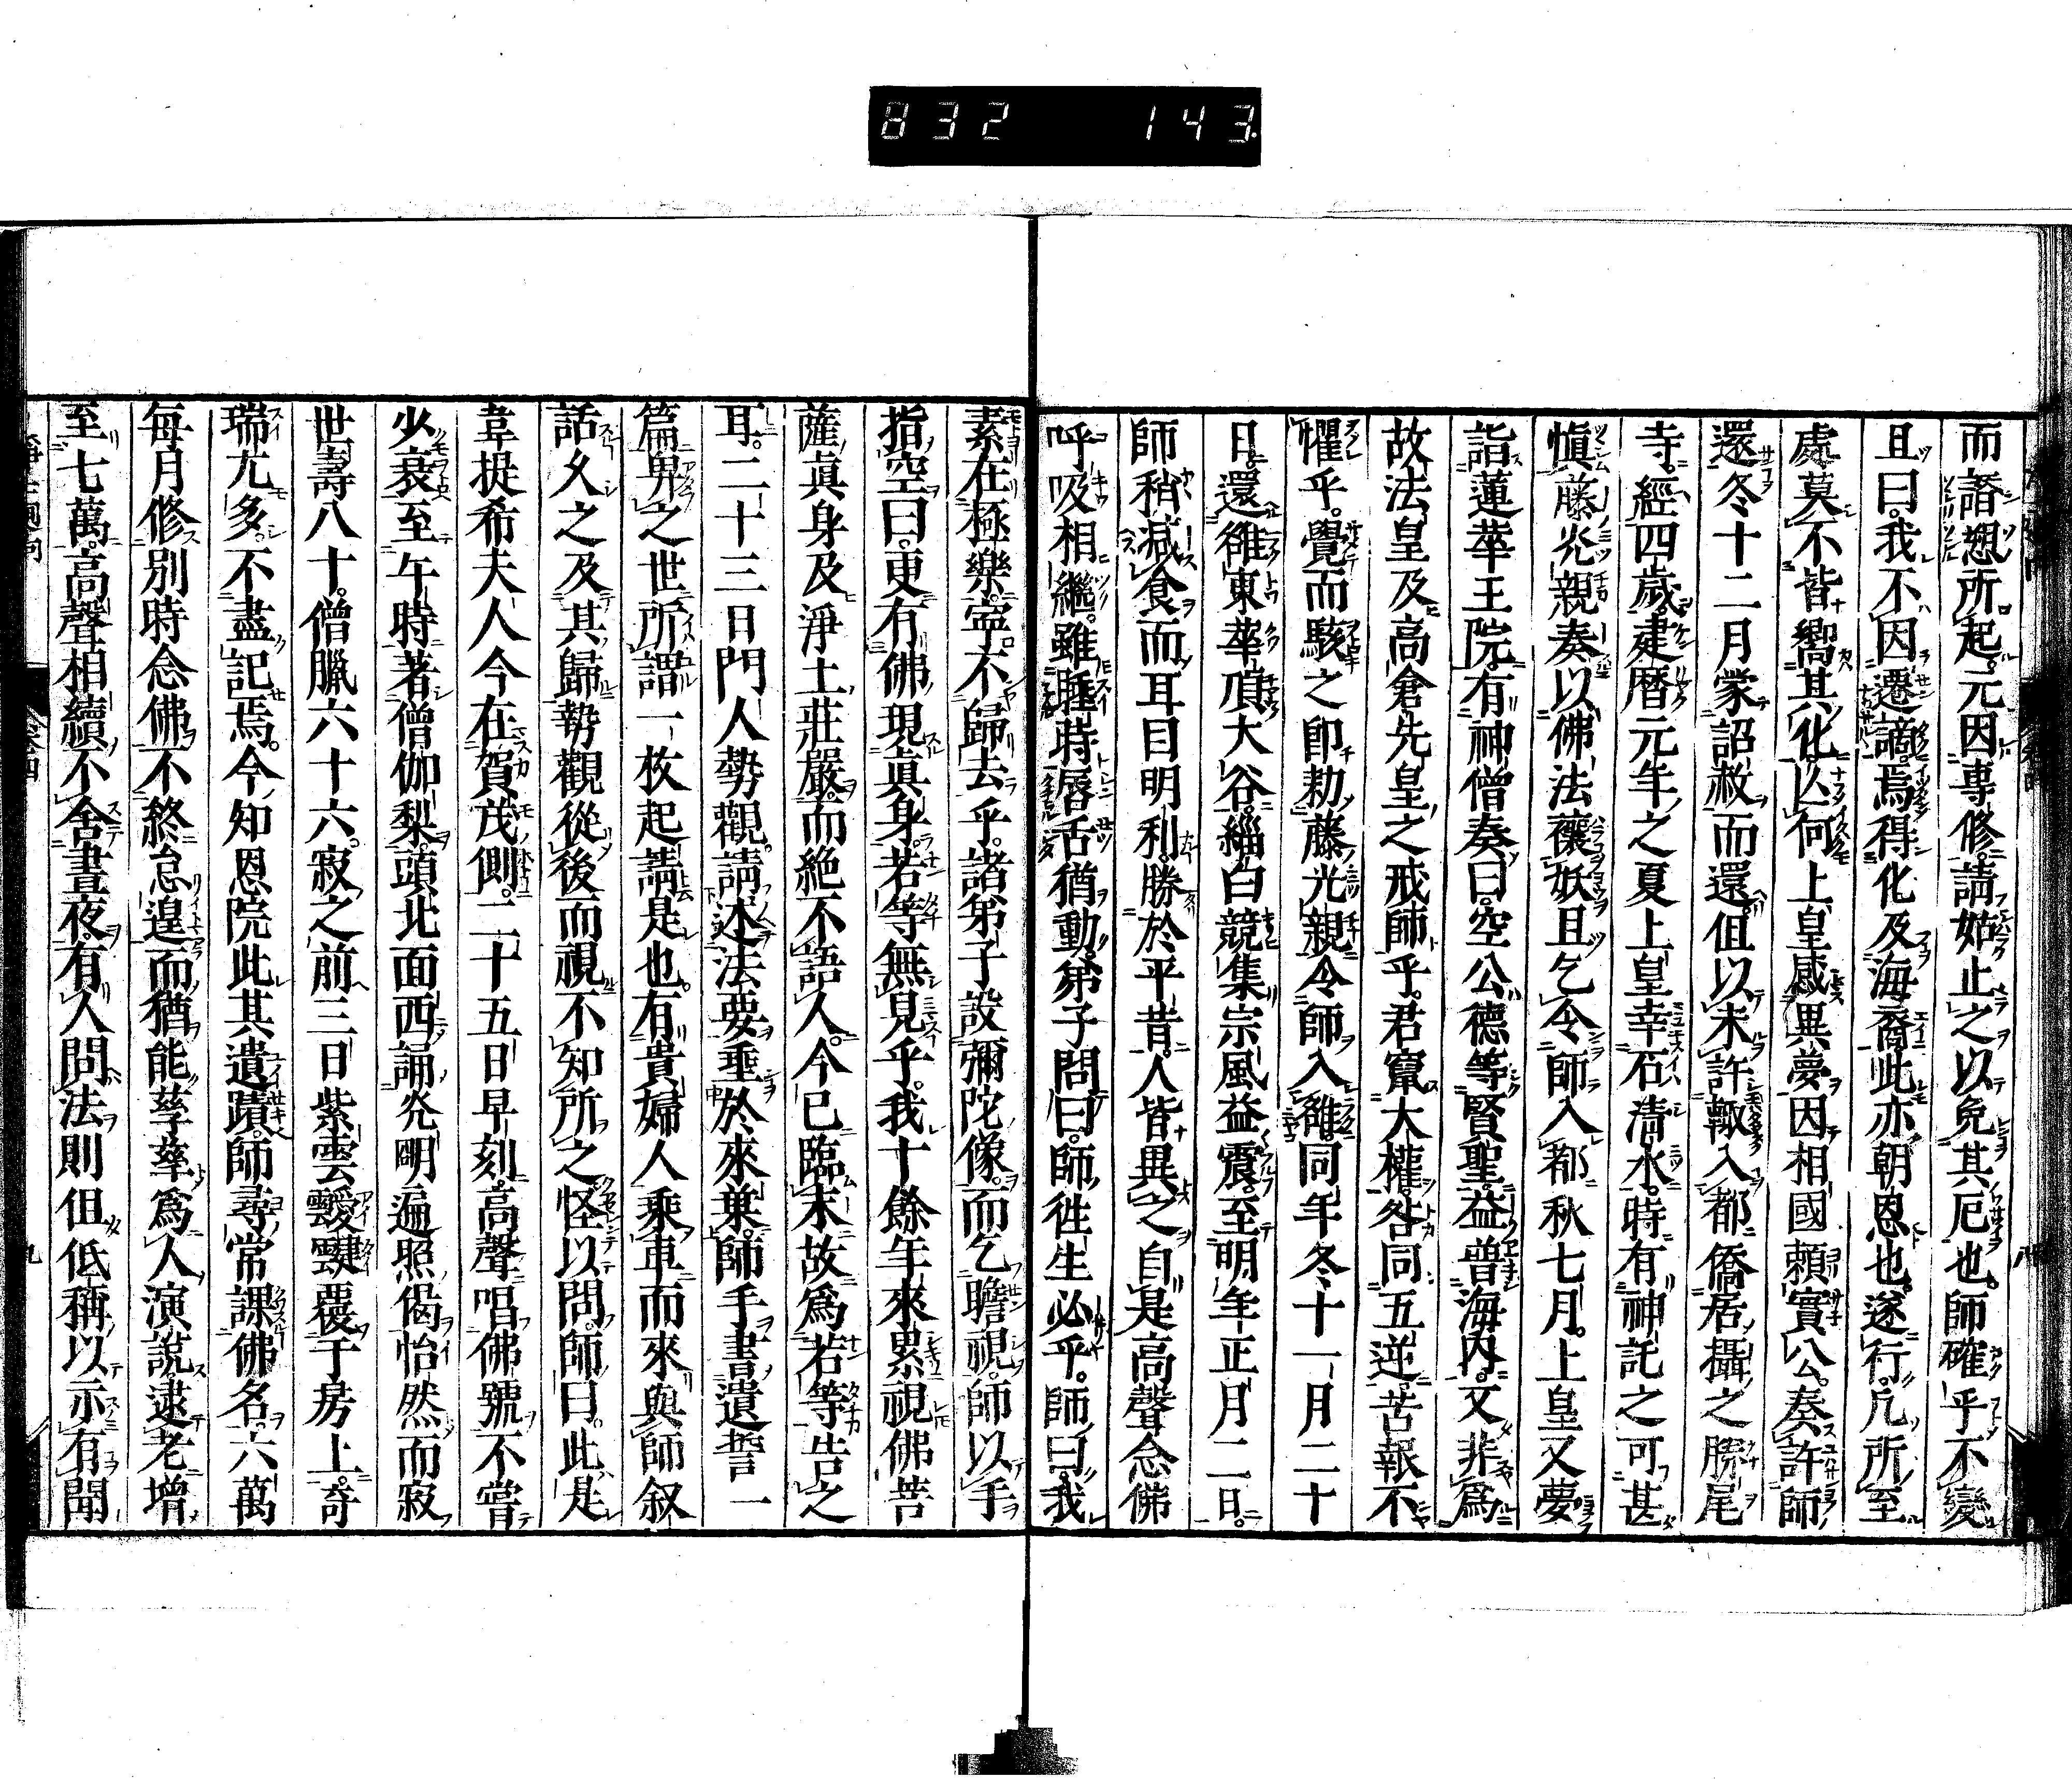 832 143
而譖愬所起元因專修請姑止之以免其厄也師確乎不變
且曰我不因遷謫焉得化及海裔此亦朝恩也遂行凡所至
處莫不皆嚮其化云何上皇感異夢因相國賴實公奏許師
還冬十二月蒙詔赦而還但以未許輙入都僑居攝之勝尾
寺經四歲建曆元年之夏上皇幸石清水時有神託之可甚
愼藤光親奏以佛法禳妖且乞令師入都秋七月上皇又夢
詣蓮華王院有神僧奏曰空公德等賢聖益普海內又非爲
故法皇及高倉先皇之戒師乎君竄大權咎同五逆苦報不
懼乎覺而駭之卽勅藤光親令師入雒同年冬十一月二十
日還雒東華頂大谷緇白競集宗風益震至明年正月二日
師稍減食而耳目明利勝於平昔人皆異之自是高聲念佛
呼吸相繼雖睡時唇舌猶動弟子問曰師徃生必乎師曰我
素在極樂寧不歸去乎諸弟子設彌陀像而乞瞻視師以手
指空曰更有佛現眞身若等無見乎我十餘年來累視佛菩
薩眞身及淨土莊嚴而絶不語人今已臨末故爲若等告之
耳二十三日門人勢觀請述法要垂於來葉師手書遺誓一
篇畀之世所謂一枚起請是也有貴婦人乘車而來與師叙
話久之及其歸勢觀從後而視不知所之怪以問師曰此是
韋提希夫人今在賀茂側二十五日早刻高聲唱佛號不嘗
少衰至午時著僧伽梨頭北面西誦光明遍照偈怡然而寂
世壽八十僧臘六十六寂之前三日紫雲靉靆覆于房上奇
瑞尤多不盡記焉今知恩院此其遺蹟師尋常課佛名六萬
每月修別時念佛不終怠遑而猶能孳孳爲人演說逮老增
至七萬高聲相續不舍晝夜有人問法則但低稱以示有聞